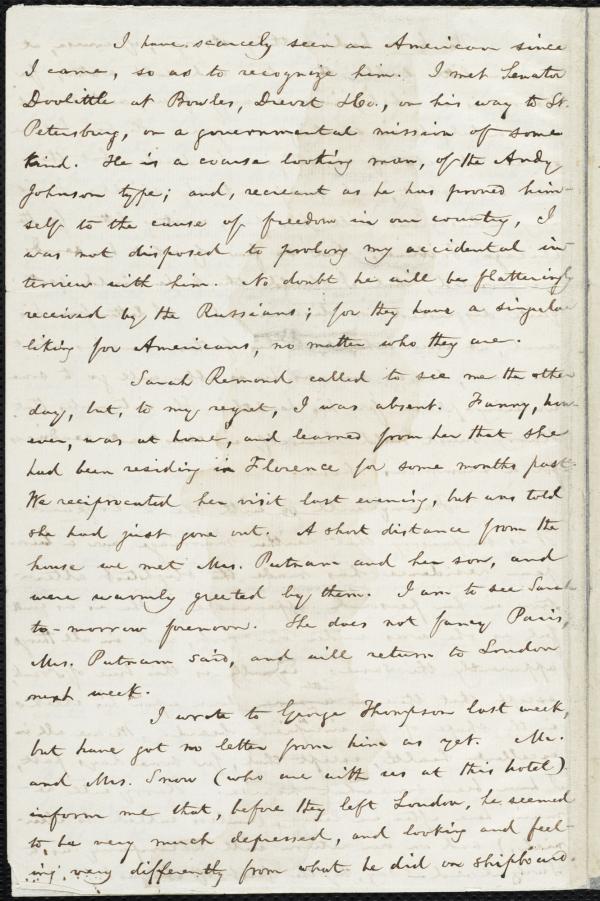 I have scarcely seen an American since
I came, so as to recognize him. I met Senator
Doolittle at Bowles, Drevet &Co., on his way to St.
Petersburg, on a governmental mission of some
kind. He is a coarse looking man, of the Andy
Johnson type; and, recreant as he has proved him-
self to the cause of freedom in our country, I
was not disposed to prolong my accidental in-
terview with him. No doubt he will be flatteringly
received by the Russians; for they have a singular
liking for Americans, no matter who they are.
Sarah Remond called to see me the other
day, but, to my regret, I was absent. Fanny, how-
ever, was at home, and learned from her that she
had been residing in Florence for some months past.
We reciprocated her visit last evening, but was told
she had just gone out. A short distance from the
house we met Mrs. Putnam and her son, and
were warmly greeted by them. I am to see Sarah
to-morrow forenoon. She does not fancy Paris,
Mrs. Putnam said, and will return to London
next week.
I wrote to George Thompson last week,
but have got no letter from him as yet. Mr.
and Mrs. Snow (who are with us at this hotel)
inform me that, before they left London, he seemed
to be very much depressed, and looking and feel-
ing very differently from what he did on shipboard.